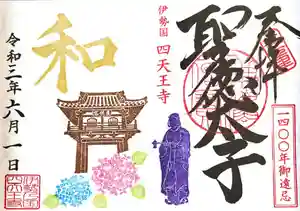 奉拝
聖徳太子
一四〇〇年御遠忌
伊勢国 四天王寺
和
令和三年六月一日